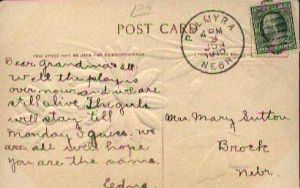 125
POST CARD
THIS SPACE MAY BE USED FOR CORRESPONDENCE
PALMYRA
4 PM
NEBR.
Dear Grandma & all
Well the play is
over now and we are
still alive. The girls
will stay till
Monday I guess. We
are all well hope
you are the same.
Edna
Mrs. Mary Sutton
Brock
Nebr.